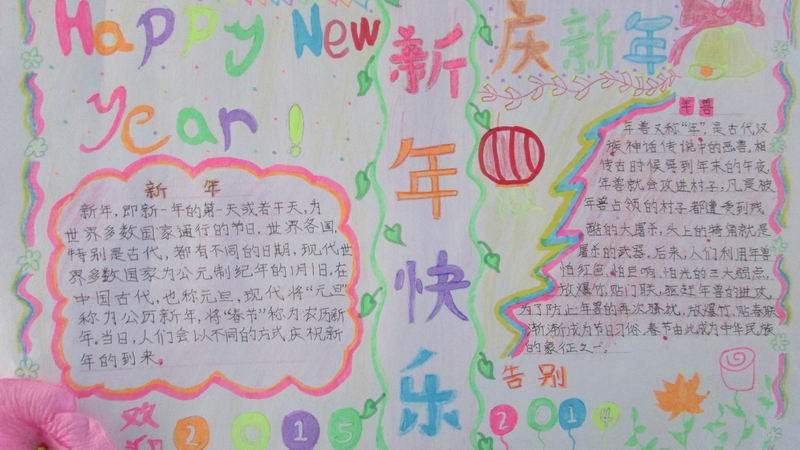 Happy New
Year!
新年快乐
庆新年
新年
新年,即新一年的第一天或若干天,为
世界多数国家通行的节日.世界各国,
特别是古代,都有不同的日期,现代世
界多数国家为公元制纪年的1月1日.在
中国古代,也称元旦,现代将“元旦”
称为公历新年,将“春节”称为农历新
年.当日,人们会以不同的方式庆祝新
年的到来.
欢迎
2015
年兽
年兽又称“年”,是古代汉
族神话传说中的恶兽.相
传古时候每到年末的午夜,
年兽就会攻进村子,凡是被
年兽占领的村子都遭受到残
酷的大屠杀,头上的犄角就是
屠杀的武器.后来,人们利用年兽
怕红色、怕巨响、怕光的三大弱点,
放爆竹,贴门联,驱赶年兽的进攻.
为了防止年兽的再次骚扰,放爆竹,贴春联
渐渐成为节日习俗,春节由此成为中华民族
的象征之一.
告别
2014